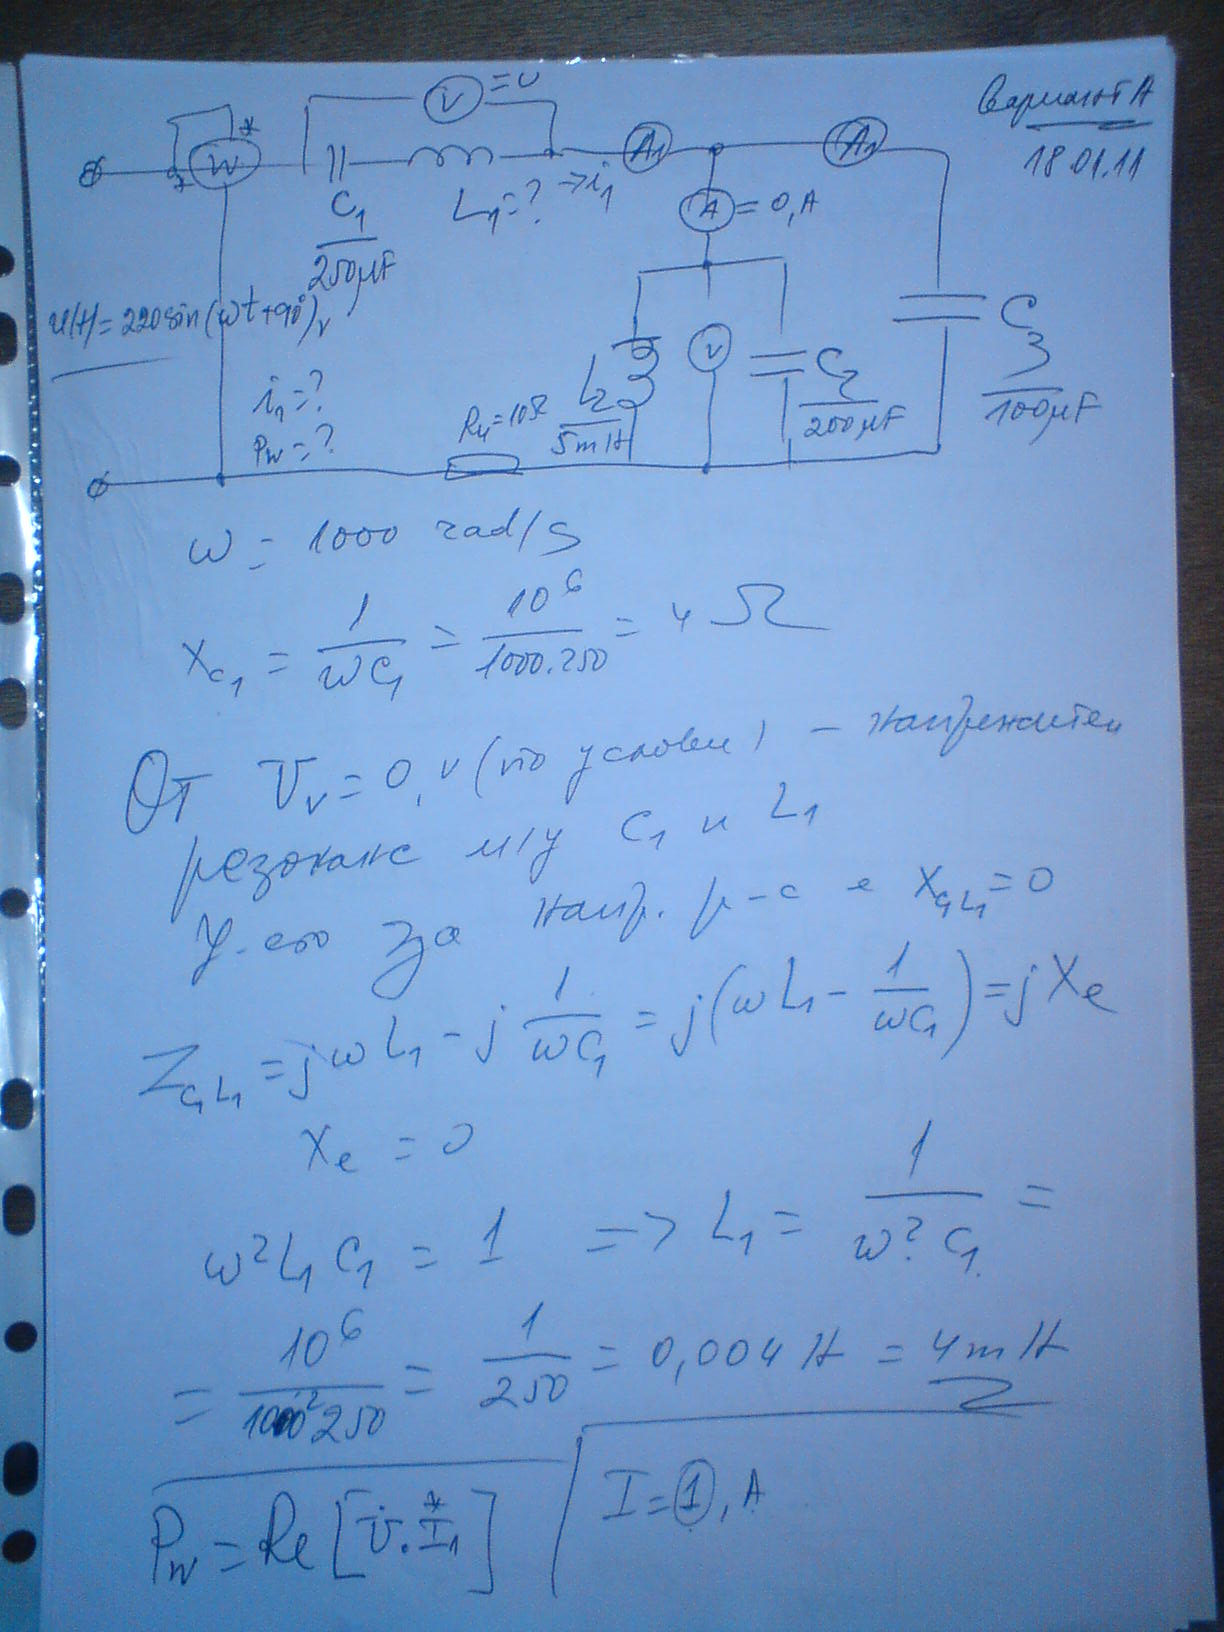 Вариант А
18.01.11
V = 0
* W *
C₁
250μF
L₁ = ?
→ i₁
A₁
A₁
A = 0, A
u(t) = 220 sin(ωt + 90°), V
i₁ = ?
Pw = ?
R₄ = 10Ω
L₂
5mH
V
C₂
200μF
C₃
100μF
ω = 1000 rad/s
X_C₁ = 1/(ωC₁) = 10⁶/(1000.250) = 4 Ω
От U_V = 0, V (по услови)
резонанс м/у C₁ и L₁
за напр. р-с е X_C₁L₁ = 0
Z_C₁L₁ = jωL₁ - j 1/(ωC₁) = j(ωL₁ - 1/(ωC₁)) = jXe
Xe = 0
ω²L₁C₁ = 1 => L₁ = 1/(ω²C₁) =
= 10⁶/(1000² 250) = 1/250 = 0,004 H = 4mH
Pw = Re[U̇.I₁*]
I = 1, A